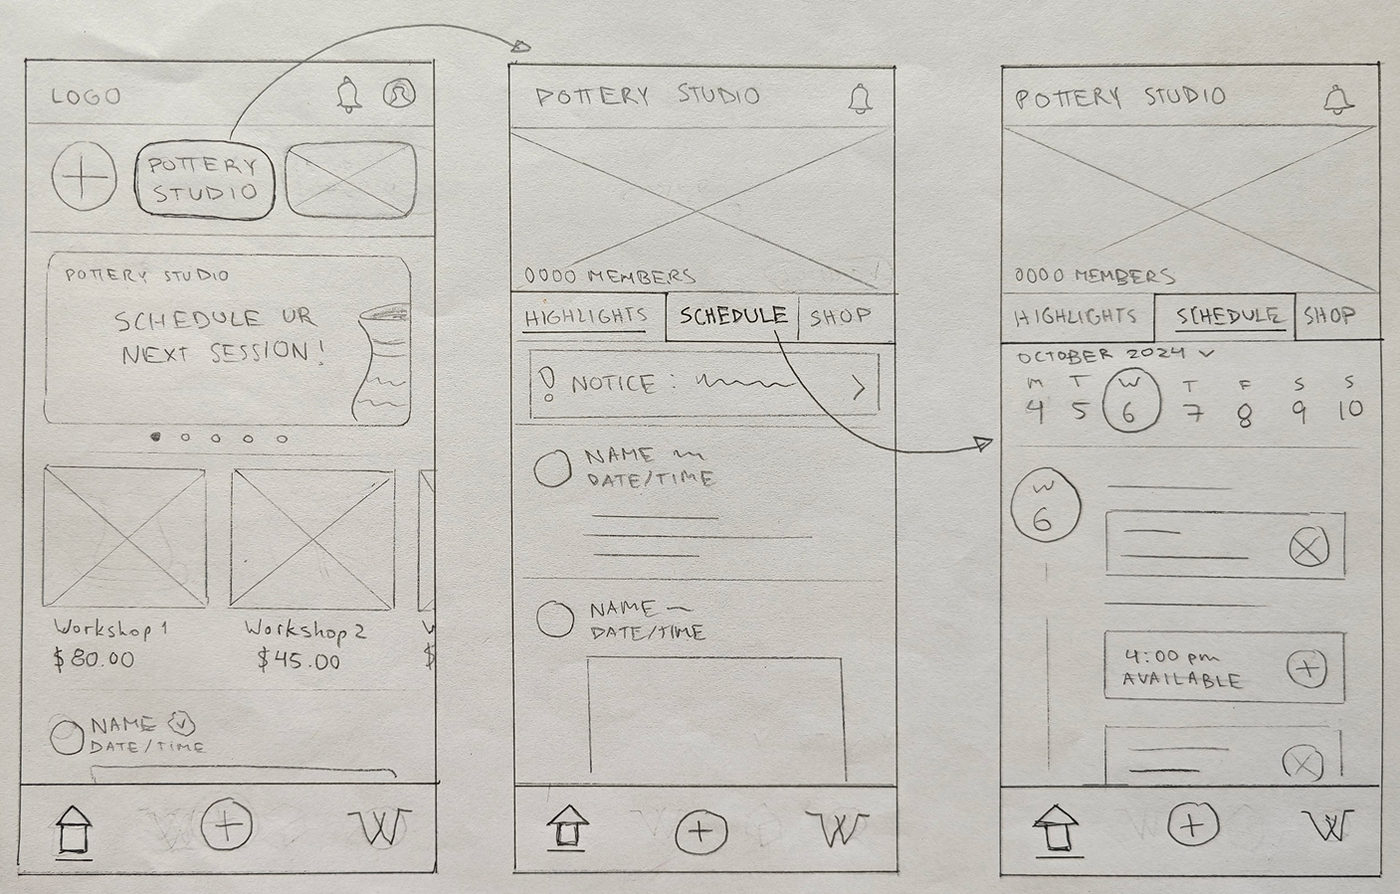 LOGO
POTTERY
STUDIO
POTTERY STUDIO
SCHEDULE UR
NEXT SESSION!
Workshop 1
$80.00
Workshop 2
$45.00
W
$
NAME
DATE/TIME
W
POTTERY STUDIO
0000 MEMBERS
HIGHLIGHTS SCHEDULE SHOP
! NOTICE:
NAME
DATE/TIME
NAME
DATE/TIME
W
POTTERY STUDIO
0000 MEMBERS
HIGHLIGHTS SCHEDULE SHOP
OCTOBER 2024
M T W T F S S
4 5 6 7 8 9 10
W
6
4:00 pm
AVAILABLE
W